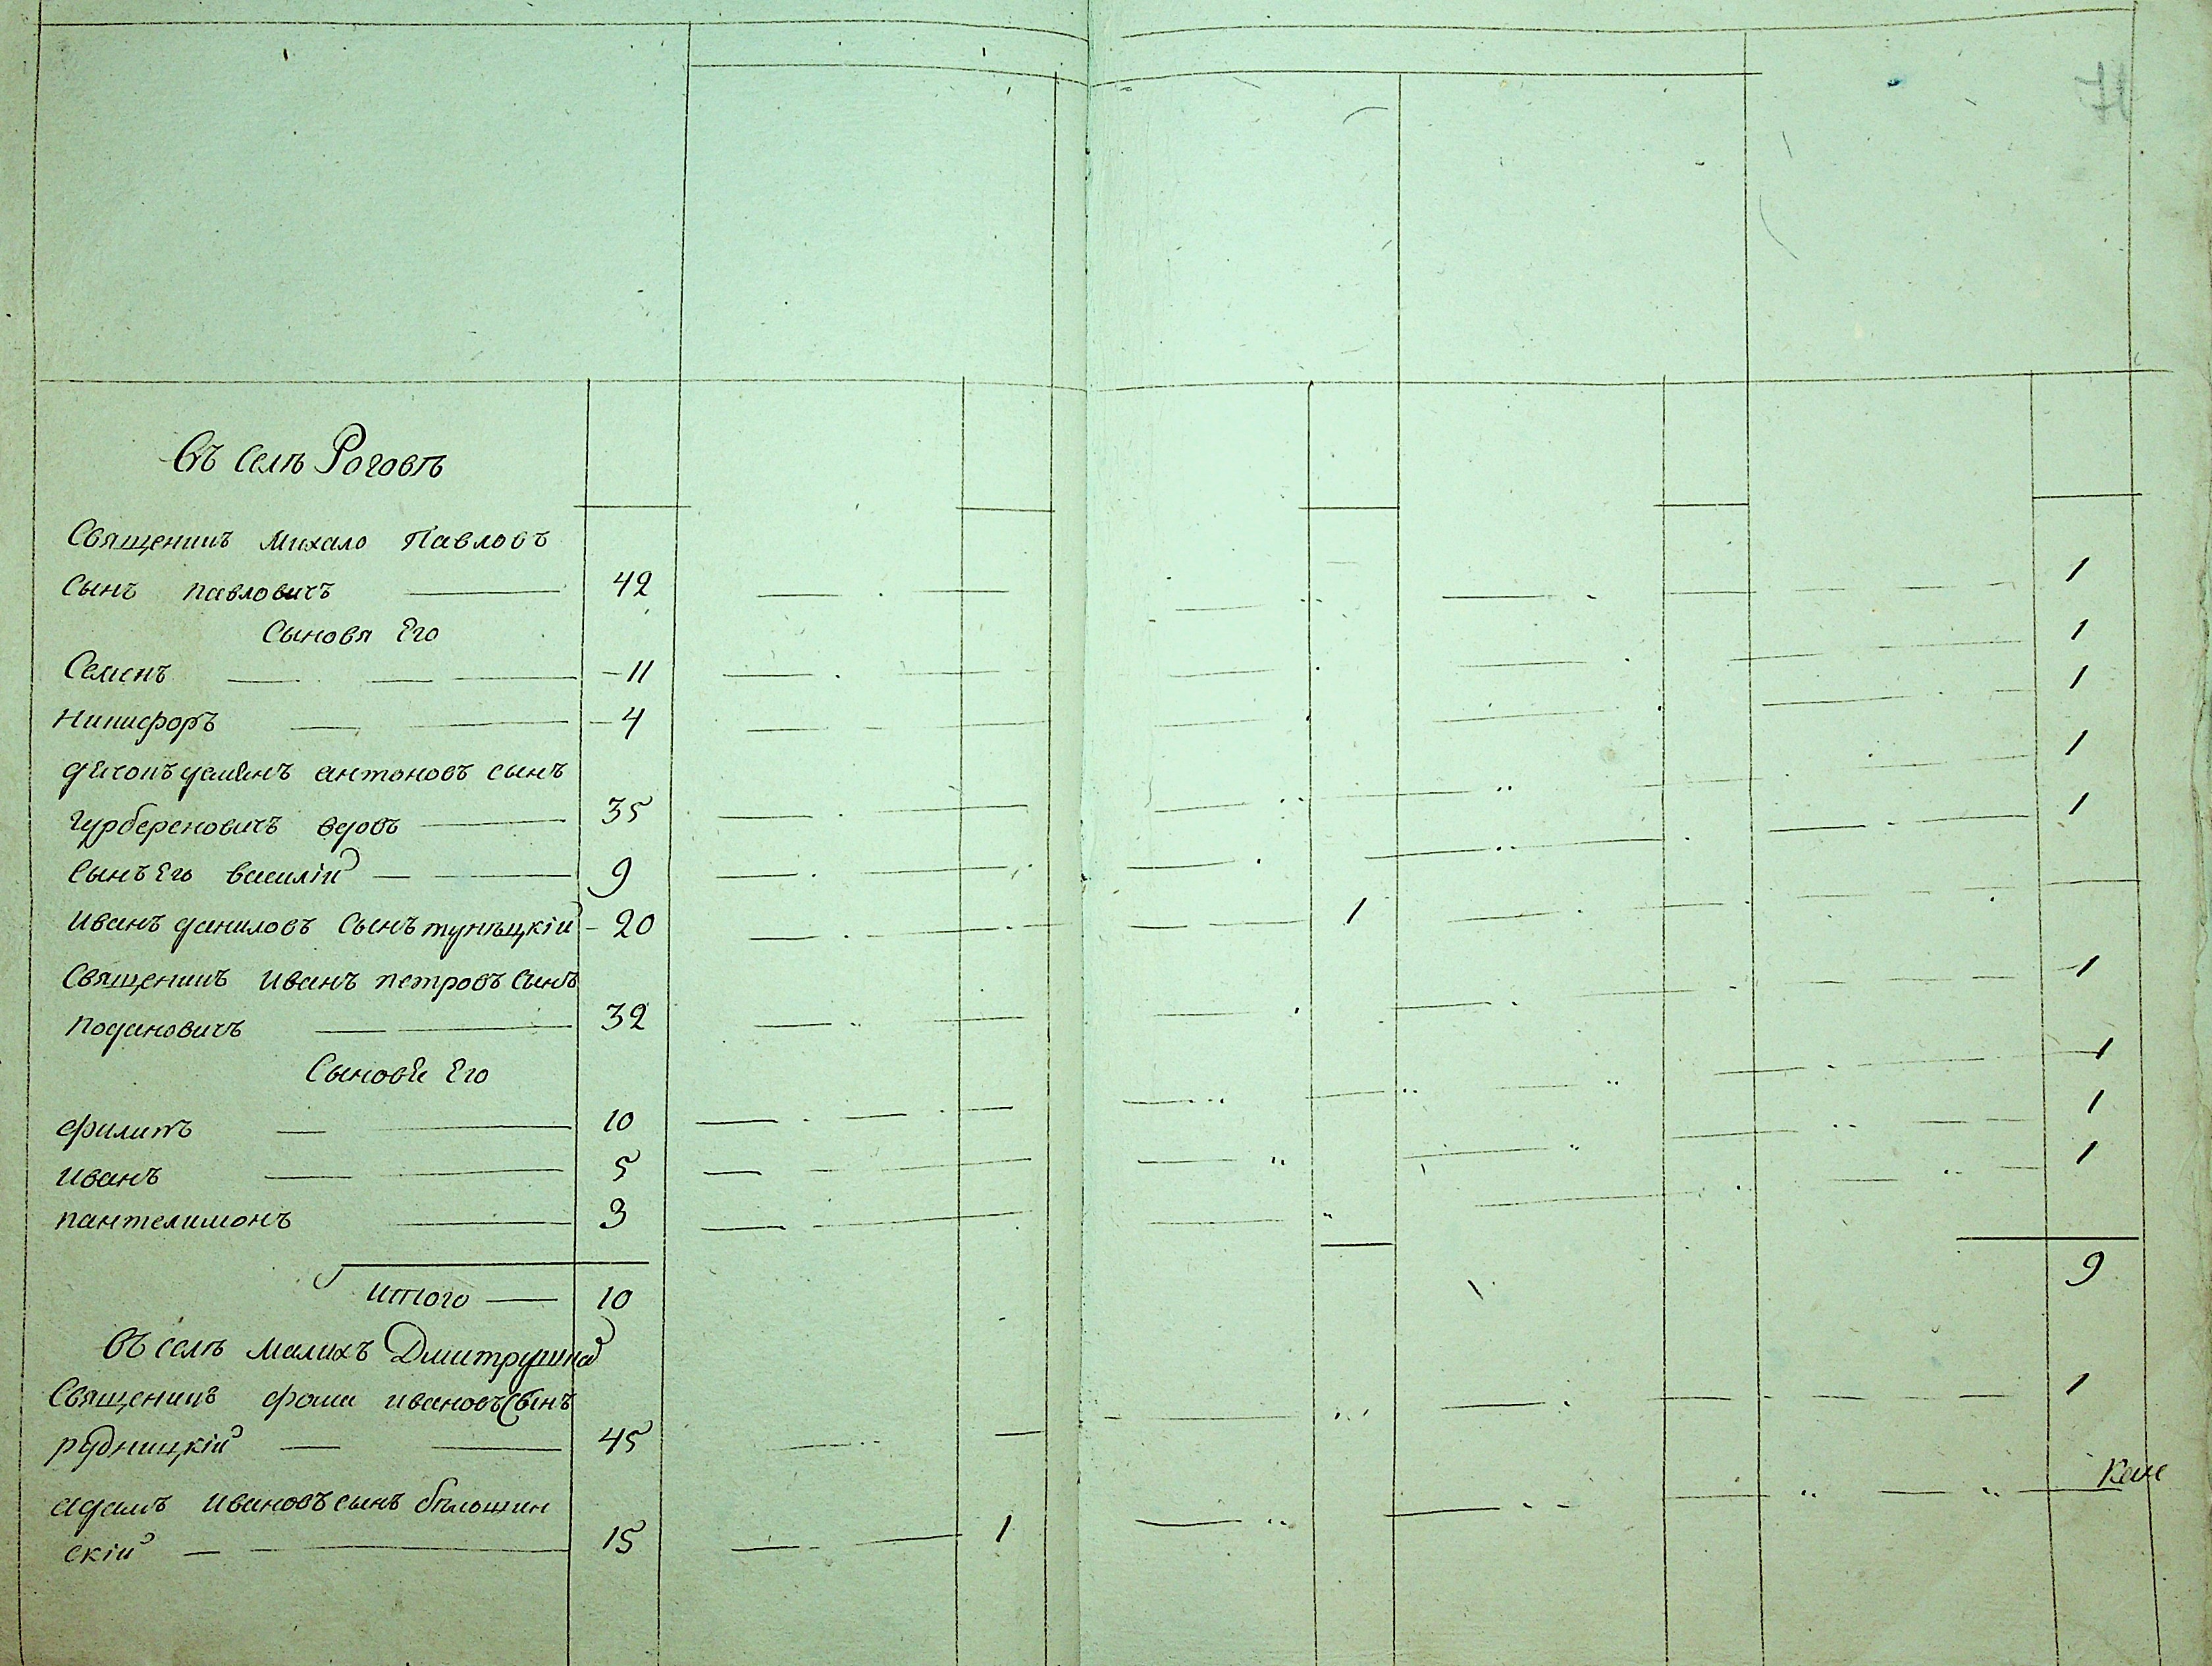 въ селѣ Роговѣ
Священикъ Михало Павловъ
Сынъ павловичъ 42 1
Сыновя Его 1
Семенъ 11 1
Никифоръ 4 1
дячокъ демянъ антоновъ сынъ
вдовъ 35 1
Сынъ Его василій 9
Иванъ даниловъ Сынъ тунѣцкій 20 1
Священикъ Иванъ петровъ Сынъ 1
подановичъ 32
Сыновѣ Его 1
филипъ 10 1
иванъ 5 1
пантелимонъ 3
итого 10 9
въ селѣ малихъ Дмитрушка
Священикъ фома ивановъ Сынъ 1
рудницкій 45
адамъ ивановъ сынъ бѣлошин
скій 15 1